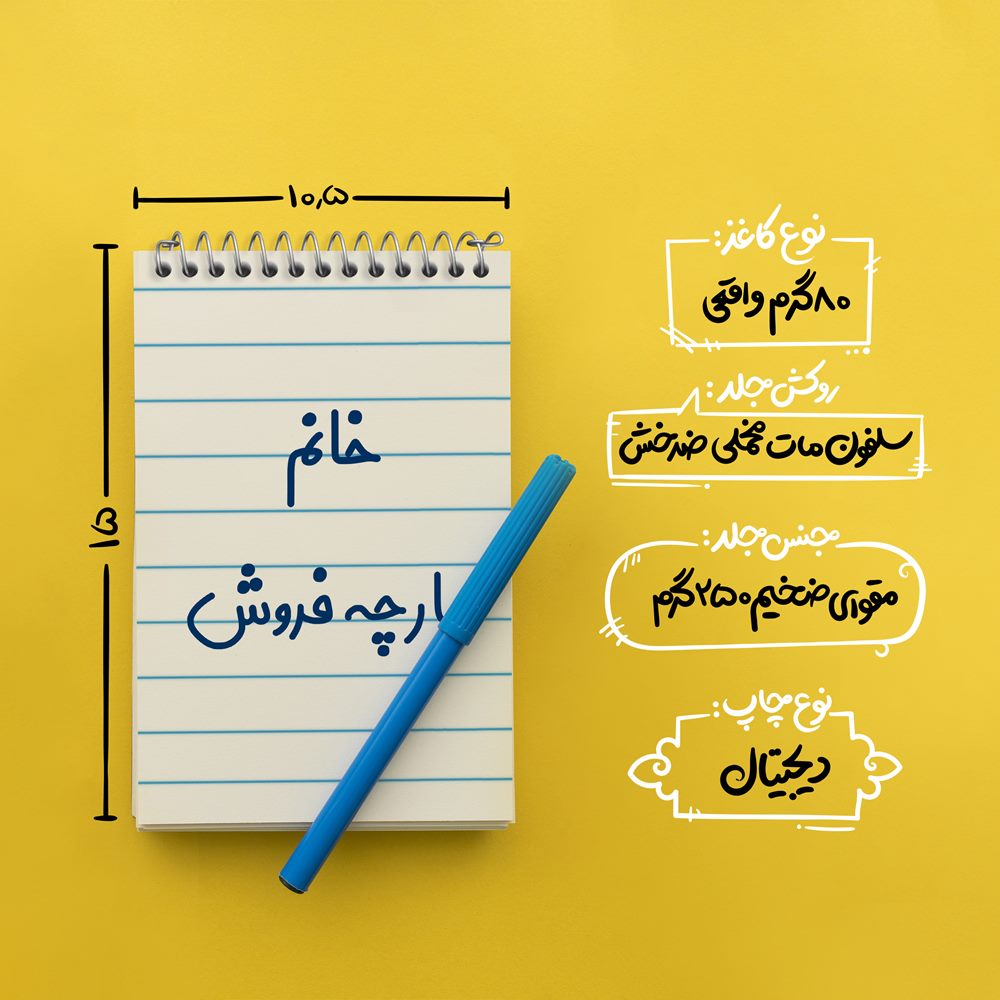 ۱۰٫۵
۱۵
خانم
ارچه فروش
نوع کاغذ:
۸۰گرم واقعی
روکش جلد:
سلفون مات مخملی ضدخش
جنس جلد:
مقوای ضخیم ۲۵۰گرم
نوع چاپ:
دیجیتال